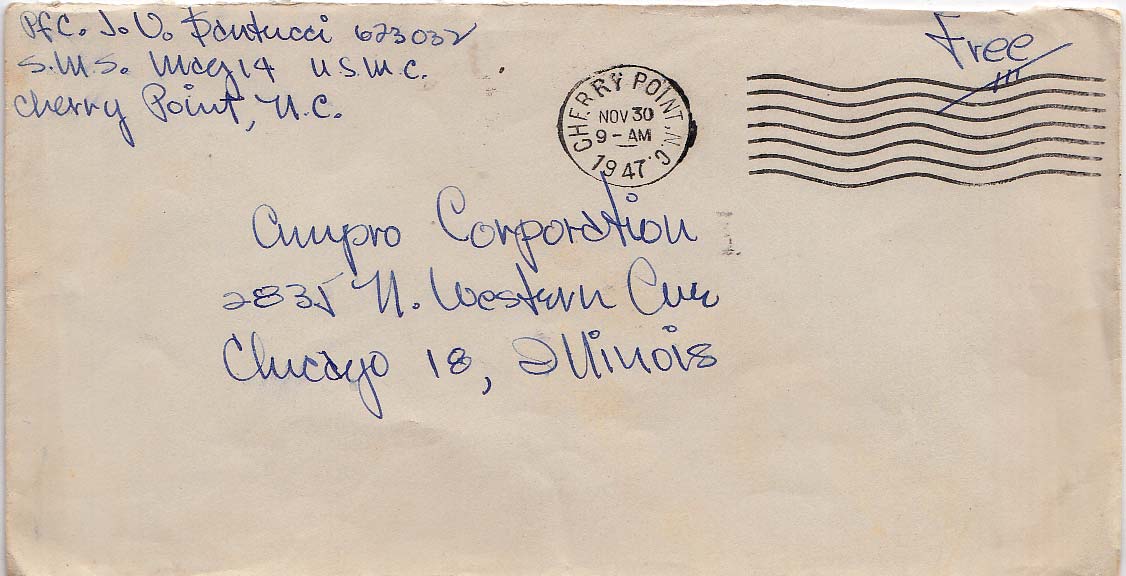 Pfc. J. V. Santucci 623032
S.M.S. Mag 14 U.S.M.C.
Cherry Point, N.C.
Free
CHERRY POINT, N.C.
NOV 30
9-AM
1947
Ampro Corporation
2835 N. Western Ave
Chicago 18, Illinois